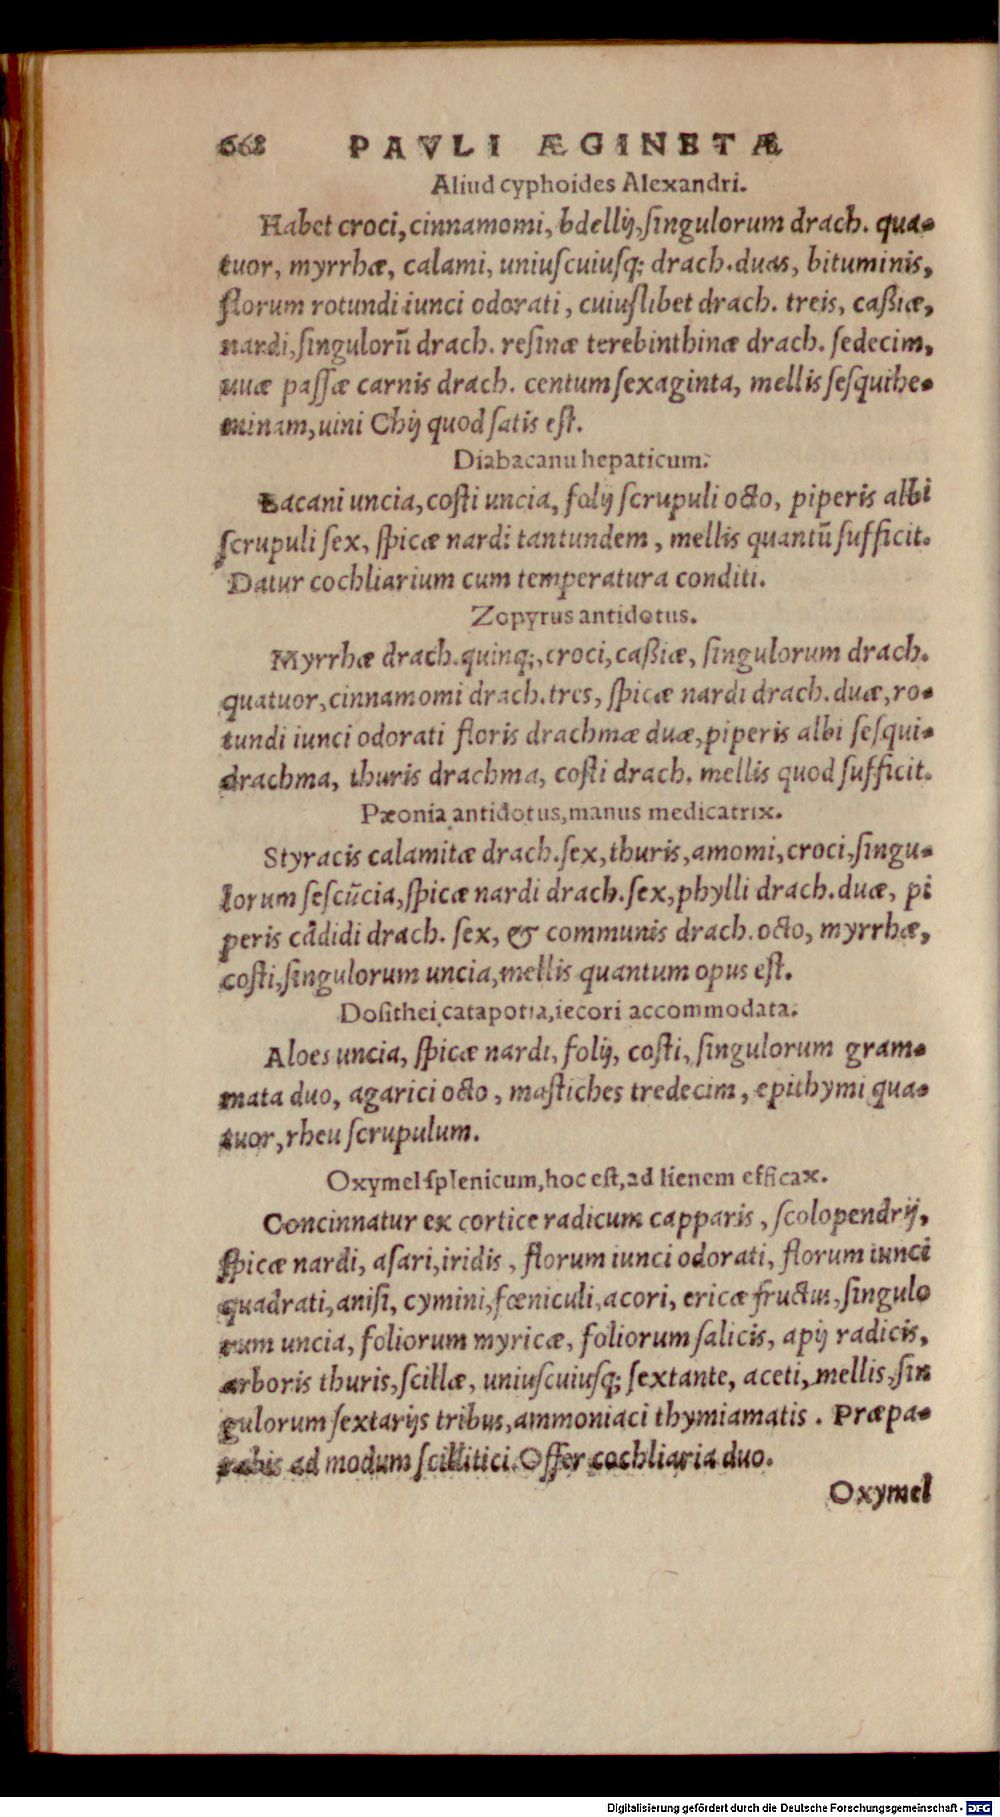 668 PAVLI ÆGINETÆ
Aliud cyphoides Alexandri.
Habet croci, cinnamomi, bdellij, ſingulorum drach. qua-
tuor, myrrhæ, calami, uniuſcuiuſq; drach. duas, bituminis,
florum rotundi iunci odorati, cuiuſlibet drach. treis, caßiæ,
nardi, ſingulorū drach. reſinæ terebinthinæ drach. ſedecim,
uuæ paſſæ carnis drach. centum ſexaginta, mellis ſeſquihe-
minam, uini Chij quod ſatis eſt.
Diabacanu hepaticum.
Bacani uncia, coſti uncia, folij ſcrupuli octo, piperis albi
ſcrupuli ſex, ſpicæ nardi tantundem, mellis quantū ſufficit.
Datur cochliarium cum temperatura conditi.
Zopyrus antidotus.
Myrrhæ drach. quinq;, croci, caßiæ, ſingulorum drach.
quatuor, cinnamomi drach. tres, ſpicæ nardi drach. duæ, ro-
tundi iunci odorati floris drachmæ duæ, piperis albi ſeſqui-
drachma, thuris drachma, coſti drach. mellis quod ſufficit.
Pæonia antidotus, manus medicatrix.
Styracis calamitæ drach. ſex, thuris, amomi, croci, ſingu-
lorum ſeſcūcia, ſpicæ nardi drach. ſex, phylli drach. duæ, pi
peris cādidi drach. ſex, & communis drach. octo, myrrhæ,
coſti, ſingulorum uncia, mellis quantum opus eſt.
Doſithei catapotia, iecori accommodata.
Aloes uncia, ſpicæ nardi, folij, coſti, ſingulorum gram-
mata duo, agarici octo, maſtiches tredecim, epithymi qua-
tuor, rheu ſcrupulum.
Oxymel ſplenicum, hoc eſt, ad lienem efficax.
Concinnatur ex cortice radicum capparis, ſcolopendrij,
ſpicæ nardi, aſari, iridis, florum iunci odorati, florum iunci
quadrati, aniſi, cymini, fœniculi, acori, ericæ fructus, ſingulo
rum uncia, foliorum myricæ, foliorum ſalicis, apij radicis,
arboris thuris, ſcillæ, uniuſcuiuſq; ſextante, aceti, mellis, ſin
gulorum ſextarijs tribus, ammoniaci thymiamatis. Præpa-
rabis ad modum ſcillitici. Offer cochliaria duo.
Oxymel
Digitalisierung gefördert durch die Deutsche Forschungsgemeinschaft - DFG